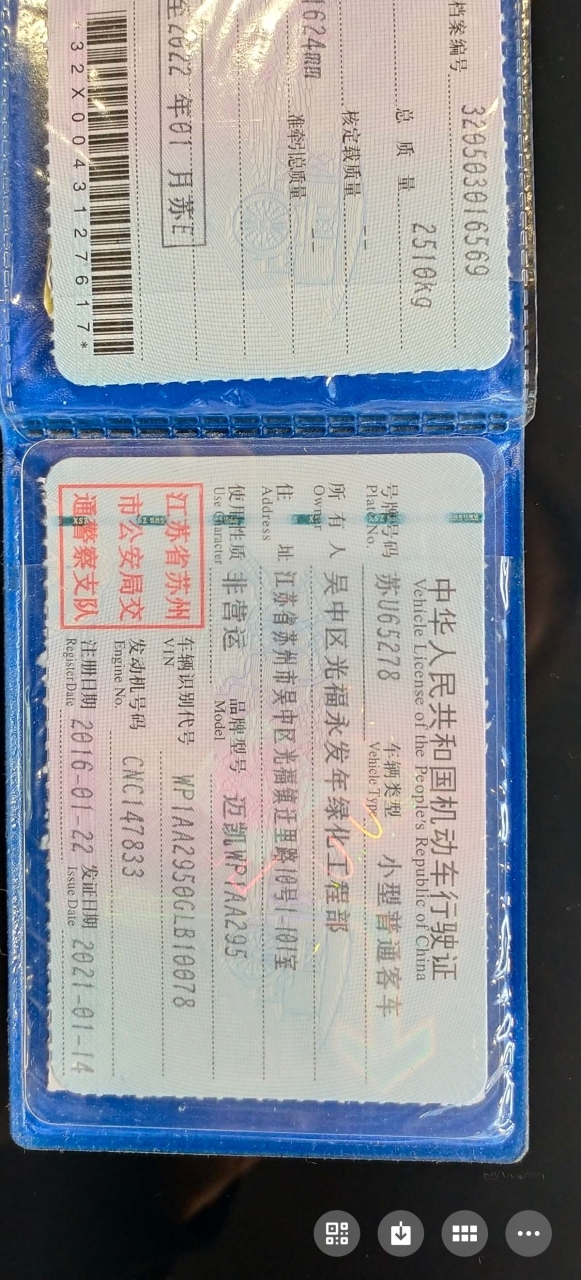 中华人民共和国机动车行驶证
Vehicle License of the People's Republic of China
号牌号码 苏U65278 车辆类型 小型普通客车
Plate No. Vehicle Type
所有人 吴中区光福永发年绿化工程部
Owner
住址 江苏省苏州市吴中区光福镇迂里路10号1-101室
Address
使用性质 非营运 品牌型号 迈凯WP1AA295
Use Character Model
车辆识别代号 WP1AA2950GLB10078
VIN
发动机号码 CNC147833
Engine No.
注册日期 2016-01-22 发证日期 2021-01-14
Register Date Issue Date
江苏省苏州
市公安局交
通警察支队
档案编号 320503016569
总质量 2510kg
核定载质量 --
1624mm 准牵引总质量 --
至2022年01月苏E
*32X0043127617*